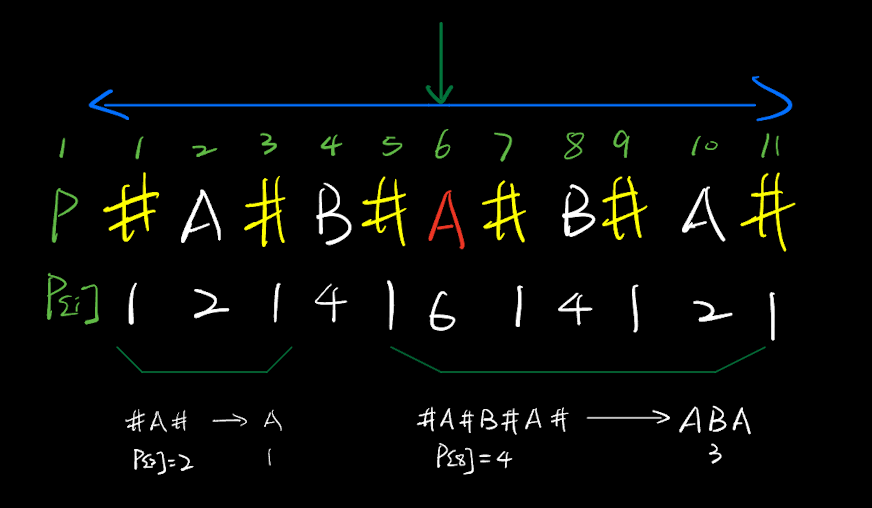 1 1 2 3 4 5 6 7 8 9 10 11
P # A # B # A # B # A #
P[i] 1 2 1 4 1 6 1 4 1 2 1
#A# → A #A#B#A# → ABA
P[2]=2 1 P[8]=4 3